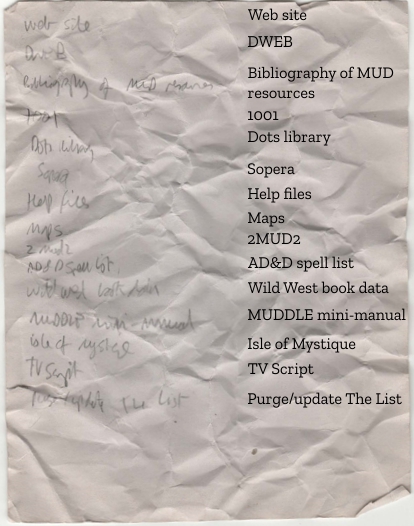 web site
DWEB
Bibliography of MUD resources
Dots library
Help files
Maps
2MUD2
AD&D spell list
wild west book data
MUDDLE mini-manual
isle of mystique
TV Script
Purge/update The List
Web site
DWEB
Bibliography of MUD
resources
1001
Dots library
Sopera
Help files
Maps
2MUD2
AD&D spell list
Wild West book data
MUDDLE mini-manual
Isle of Mystique
TV Script
Purge/update The List